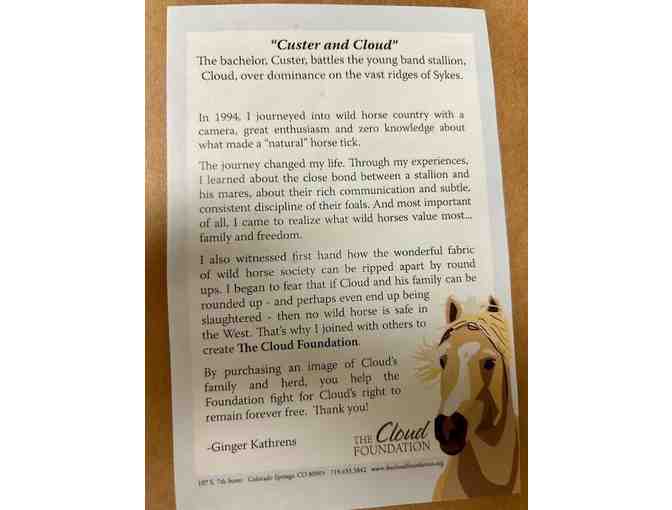 "Custer and Cloud"
The bachelor, Custer, battles the young band stallion,
Cloud, over dominance on the vast ridges of Sykes.
In 1994, I journeyed into wild horse country with a
camera, great enthusiasm and zero knowledge about
what made a "natural" horse tick.
The journey changed my life. Through my experiences,
I learned about the close bond between a stallion and
his mares, about their rich communication and subtle,
consistent discipline of their foals. And most important
of all, I came to realize what wild horses value most...
family and freedom.
I also witnessed first hand how the wonderful fabric
of wild horse society can be ripped apart by round
ups. I began to fear that if Cloud and his family can be
rounded up - and perhaps even end up being
slaughtered - then no wild horse is safe in
the West. That's why I joined with others to
create The Cloud Foundation.
By purchasing an image of Cloud's
family and herd, you help the
Foundation fight for Cloud's right to
remain forever free. Thank you!
-Ginger Kathrens
THE Cloud
FOUNDATION
107 S. 7th Street Colorado Springs, CO 80905 719.633.3842 www.thecloudfoundation.org